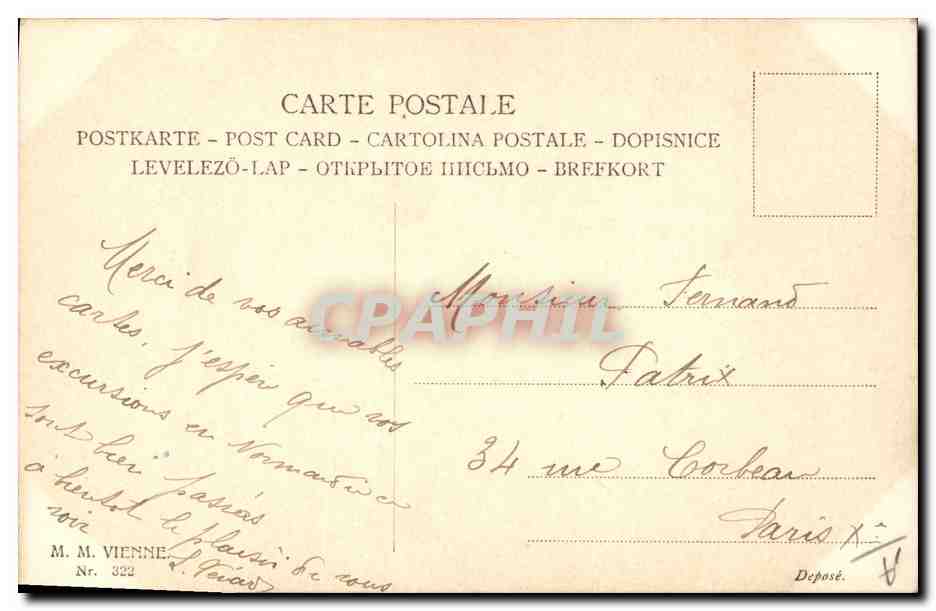 CARTE POSTALE
POSTKARTE – POST CARD – CARTOLINA POSTALE – DOPISNICE
LEVELEZŐ-LAP – ОТКРЫТОЕ ПИСЬМО – BREFKORT
Merci de vos aimables
cartes, j'espère que vos
excursions en Normandie
sont bien passées
à bientôt le plaisir de vous
voir
Monsieur Fernand
Patrix
34 rue Corbeau
Paris Xe
CPAPHIL
M. M. VIENNE.
Nr. 322
Deposé.